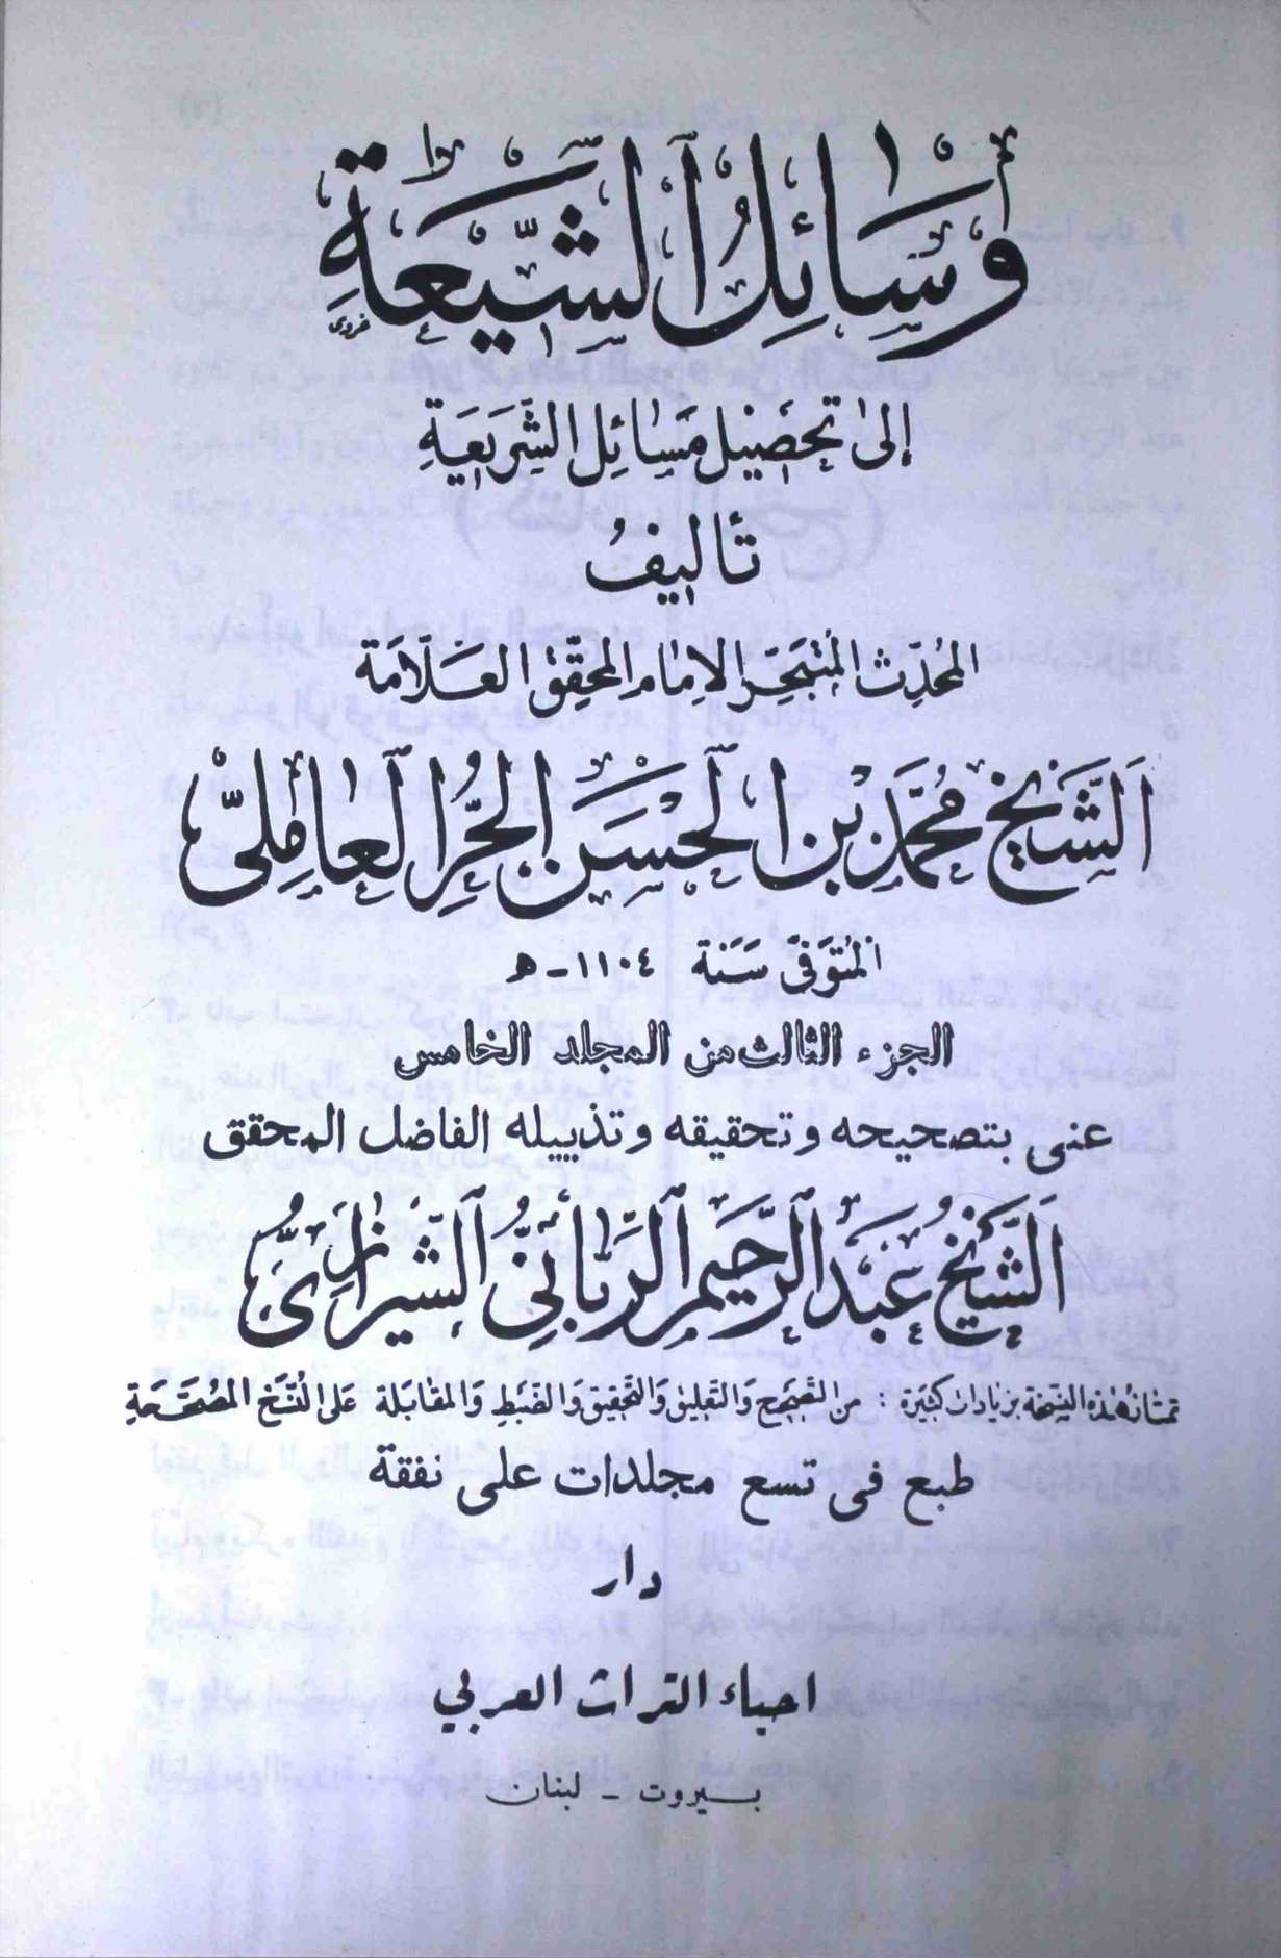 وَسَائِلُ الشِّيعَةِ
إلى تحصيل مسائل الشريعة
تأليفُ
المحُدِّث المتبحِّر الإمام المحقِّق العَلّامَة
الشَّيخ مُحَمَّد بْن الحَسَن الحُرّ العَامِليّ
المتُوَفّىَ سَنَة ١١٠٤-ه
الجزء الثالث من المجلد الخامس
عنى بتصحيحه وتحقيقه وتذييله الفاضل المحقق
الشَّيخ عَبد الرَّحيم الرَّبّاني الشّيرازيُّ
تمتاز هذه النسخة بزيادات كثيرة : من التصحيح والتعليق والتحقيق والضبط والمقابلة على النسخ المصححة
طبع فى تسع مجلدات على نفقة
دار
احياء التراث العربي
بيروت - لبنان